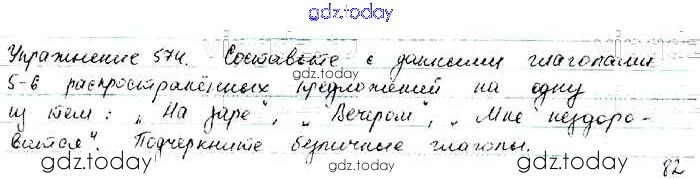 gdz.today
Упражнение 574. Составьте с данными глаголами
5-6 распространённых предложений на одну
из тем: „На заре", „Вечером", „Мне нездоро-
вится". Подчеркните безличные глаголы.
gdz.today
gdz.today
gdz.today
82